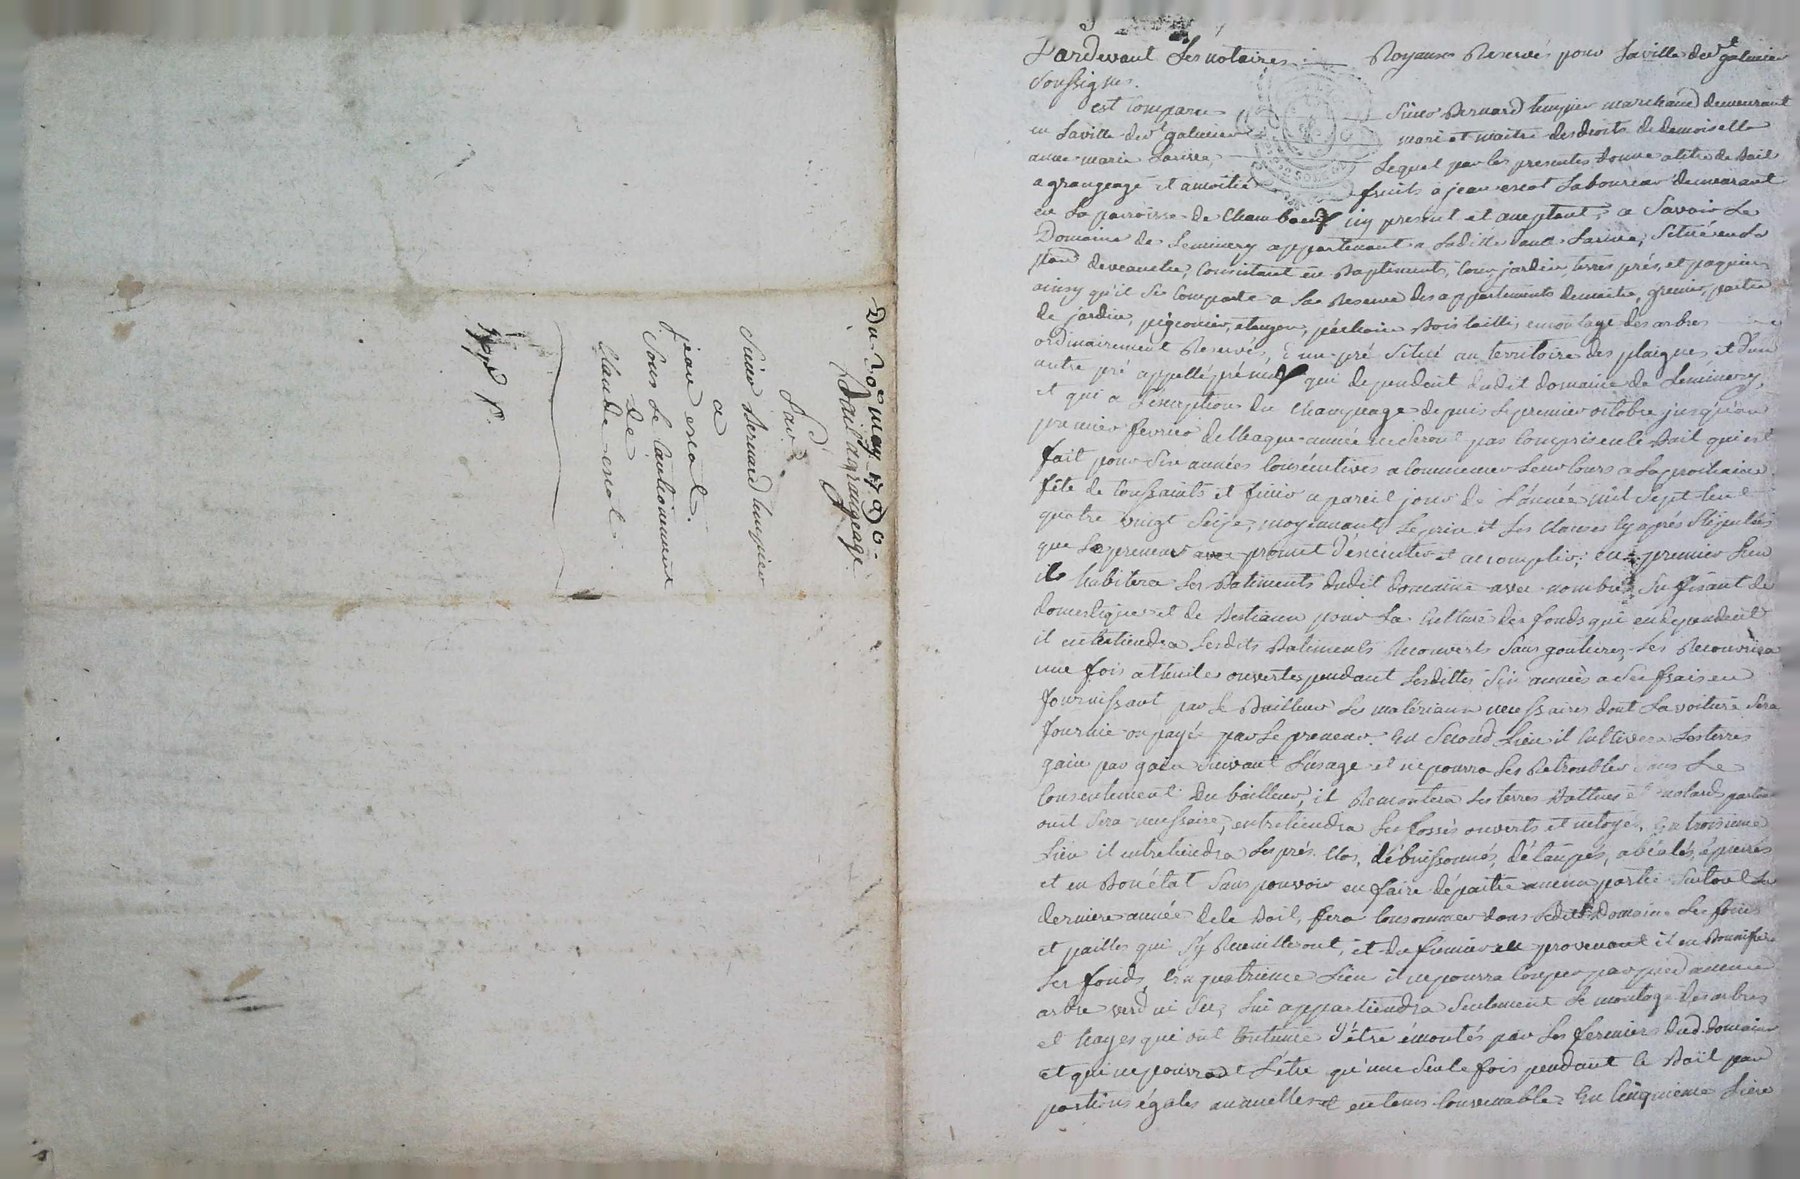 Du 20e may 1790.
Bail a grangeage
Par
Sieur Bernard
a
jean escot.
Sous le Cautionnement
de
Claude escot
Pardevant Les notaires Royaux Reservés pour La ville de st galmier
soussignés.
est comparu Sieur Bernard marchand demeurant
en La ville de st galmier mari et maitre des droits de demoiselle
anne marie Larive Lequel par les presentes donne a titre de Bail
a grangeage et a moitié fruits a jean escot Laboureur demeurant
en La paroisse de Chamboeuf icy present et acceptant, a Savoir Le
Domaine de Leminery appartenant a Laditte dame Larive, Situé en La
psse de veauche, Consistant en Baptiments, Cour, jardin terres prés, et paquier
ainsy qu'il Se Comporte a La Reserve des appartements de maitre, grenier, partie
de jardin, pigeonier, etangs, pêcherie Bois taillis, emontage des arbres
ordinairement Reservés, d'un pré Situé au territoire des plaignes et d'un
autre pré appellé pré qui dependent dudit domaine de Leminery,
et qui a L'exception du Champeage depuis Le premier octobre jusqu'au
premier fevrier de Chaque année ne Seront pas Compris en le Bail qui est
fait pour Six années Consécutives a Commencer Leur Cours a La prochaine
fête de toussaints et finir a pareil jour de L'année mil Sept Cent
quatre vingt Seize, moyennant Le prix et Les Clauses Cy après Stipulées
que Le preneur promet d'executer et accomplir; en premier Lieu
il habitera Les Batiments dudit domaine avec nombre Suffisant de
domestiques et de Bestiaux pour La Culture des fonds qui en dependent
il entretiendra Lesdits Batiments Recouverts Sans goutieres, Les Recouvrira
une fois a thuiles ouvertes pendant Lesdittes Six années a Ses frais en
fournissant par Le Bailleur Les matériaux necessaires dont La voiture Sera
fournie ou payé par Le preneur. En Second Lieu il Cultivera Les terres
gain par gain Suivant L'usage et ne pourra Les Retroubler Sans Le
Consentement du bailleur, il Remontera Les terres Battues et partout
ou il Sera necessaire, entretiendra Les fossés ouverts et netoyés, En troisieme
Lieu il entretiendra Les prés Clos, débuissonnés, détaupés, abéalés, épierrés
et en Bon état Sans pouvoir en faire dépaitre aucune partie Surtout La
derniere année de le Bail, fera Consommer dans Ledit Domaine Les foins
et pailles qui S'y Recueilleront, et du fumier en provenant il en Bonifiera
Les fonds, En quatrieme Lieu il ne pourra Couper par pied aucun
arbre verd ni Sec, Lui appartiendra Seulement Le montage des arbres
et hayes qui ont Coutume d'être émontés par Les fermiers dud. domaine
et qui ne pourront L'être qu'une Seule fois pendant le Bail par
portions égales annuelles et en tems Convenable. En Cinquieme Lieu